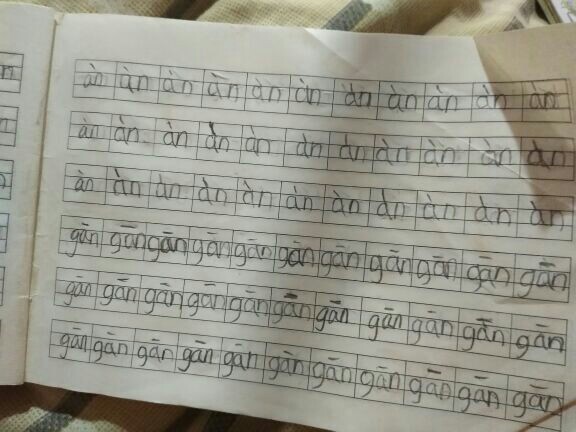 àn àn àn àn àn àn àn àn àn àn àn
àn àn àn àn àn àn àn àn àn àn àn
àn àn àn àn àn àn àn àn àn àn àn
gān gān gān gān gān gān gān gān gān gān gān
gān gān gān gān gān gān gān gān gān gān gān
gān gān gān gān gān gān gān gān gān gān gān